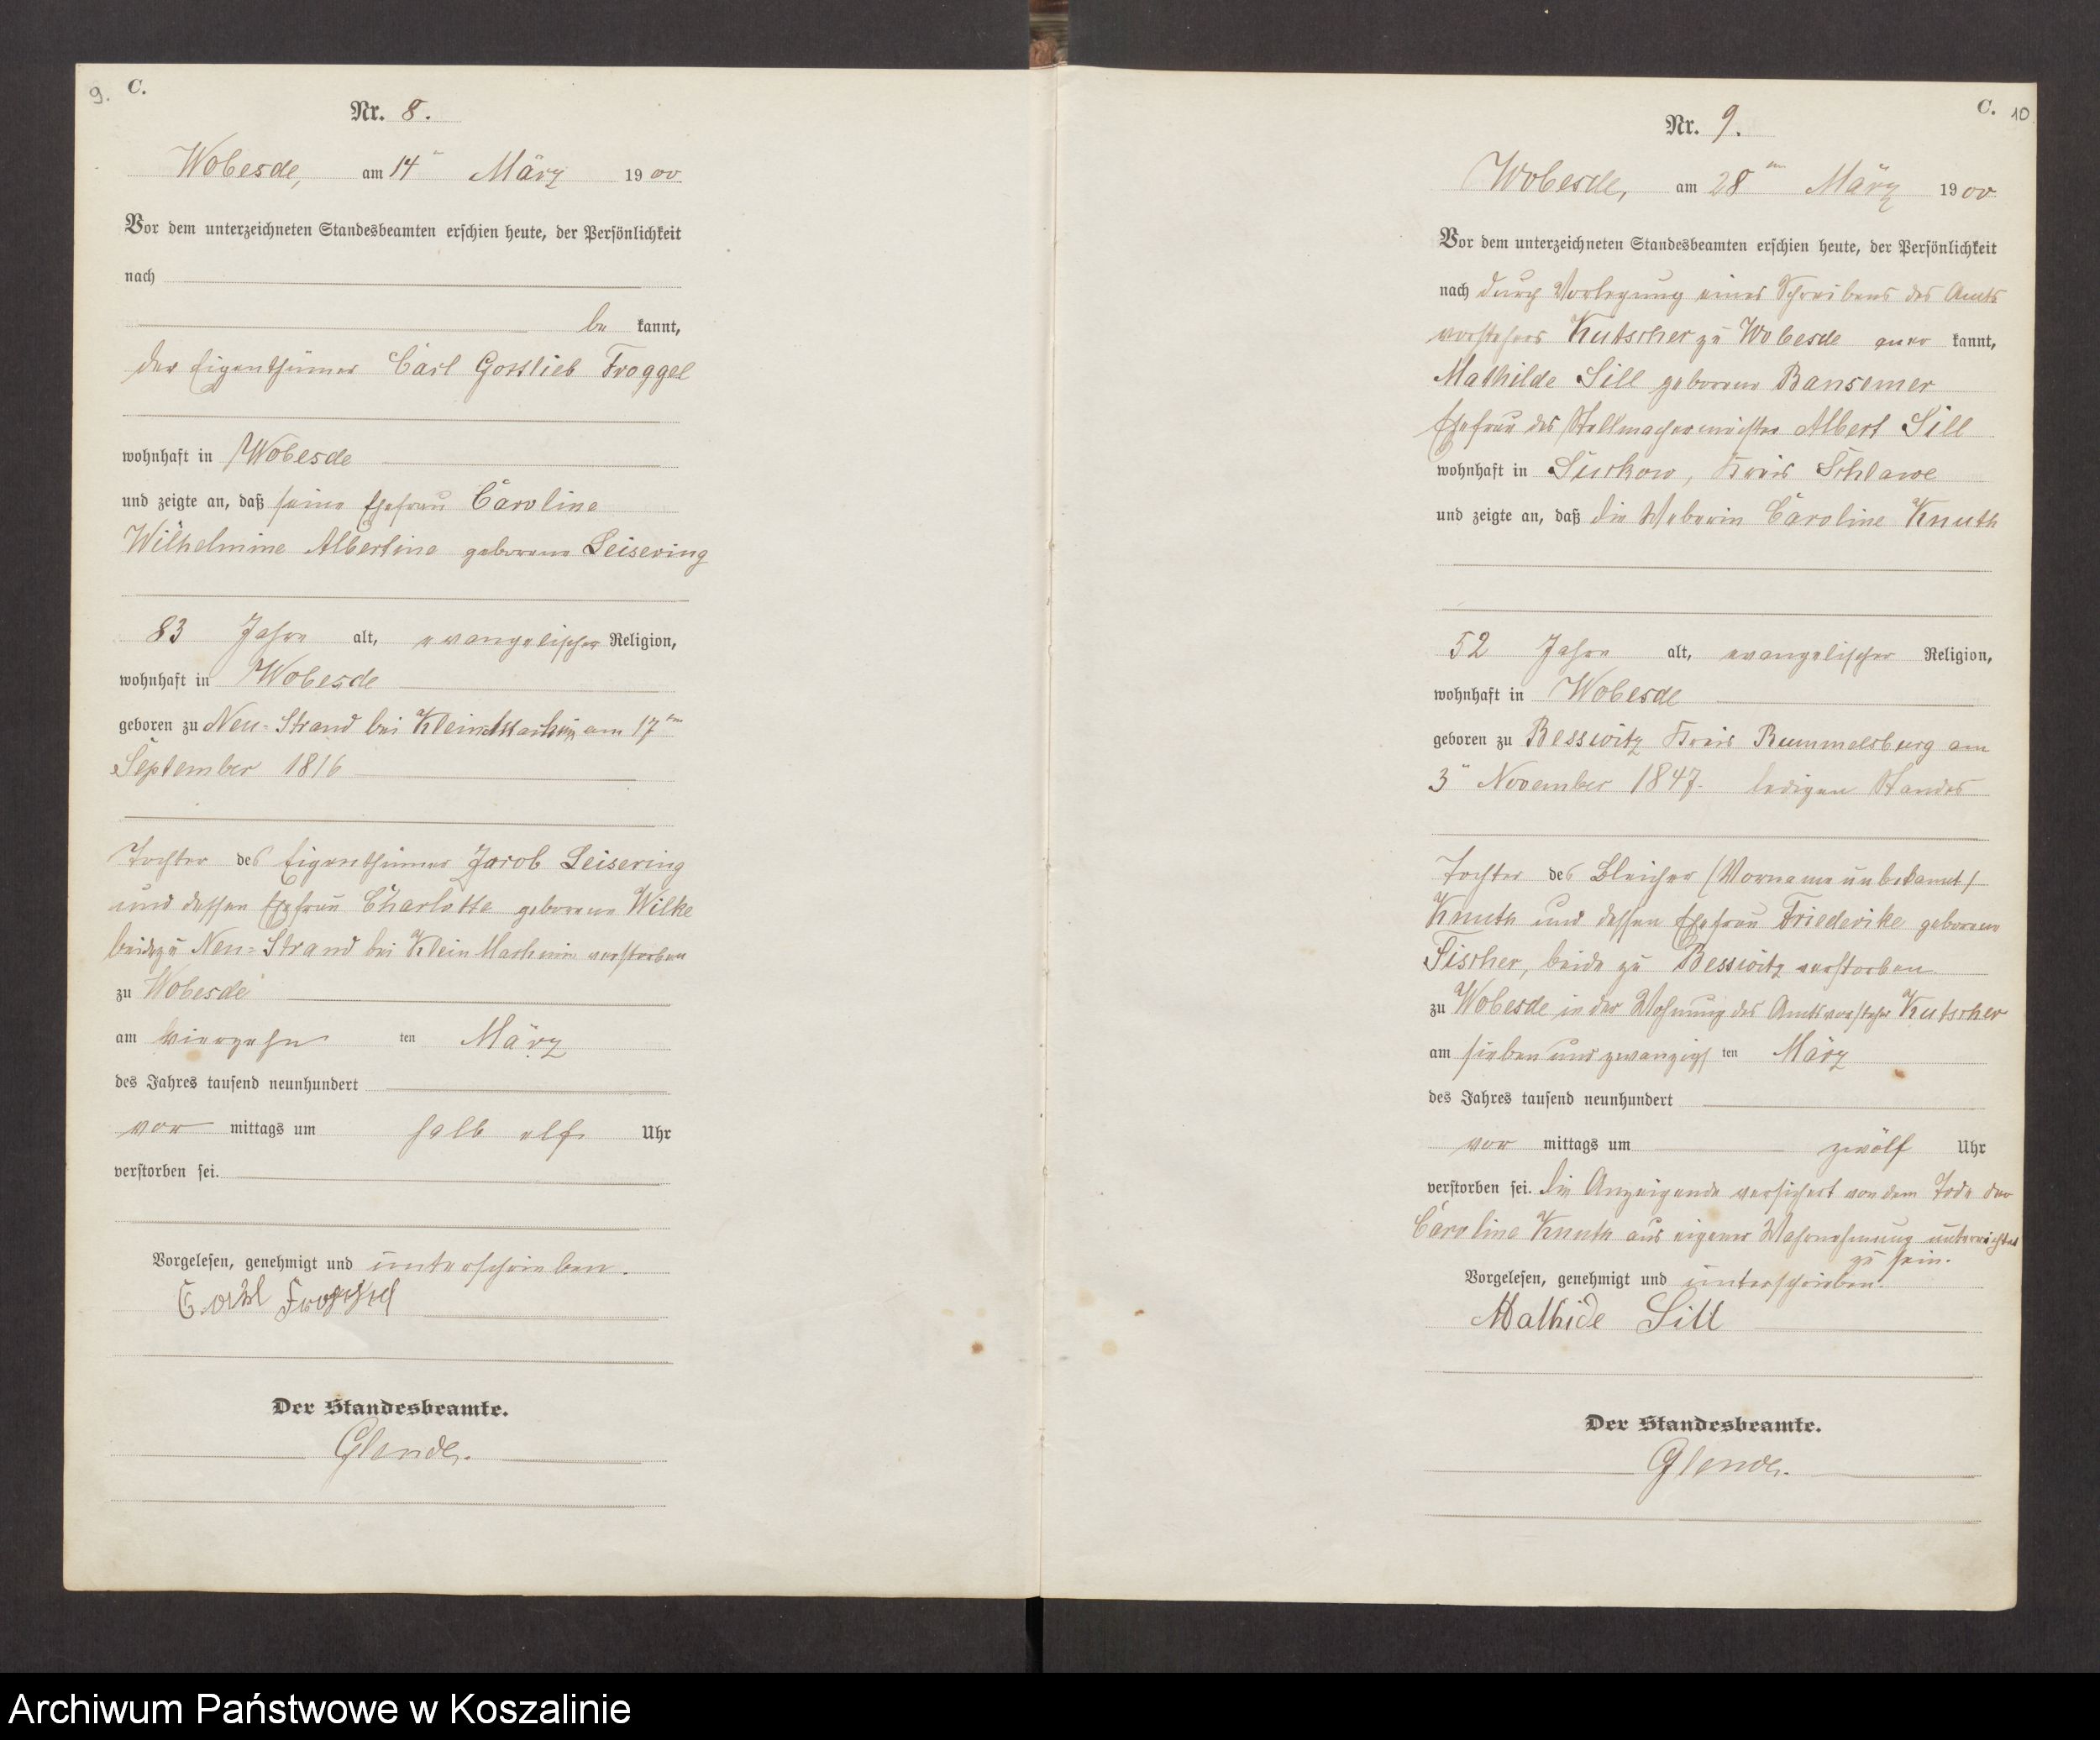 9.
C.
Nr. 8.
Wobesde, am 14ͭ März 1900
Vor dem unterzeichneten Standesbeamten erschien heute, der Persönlichkeit
nach
be kannt,
der Eigenthümer Carl Gottlieb Froggel
wohnhaft in Wobesde
und zeigte an, daß seine Ehefrau Caroline
Wilhelmine Albertine geborene Leisering
83 Jahre alt, evangelischer Religion,
wohnhaft in Wobesde
geboren zu Neu-Strand bei Klein am 17ten
September 1816
Tochter des Eigenthümer Jacob Leisering
und dessen Ehefrau Charlotte geborene Wilke
beide zu Neu-Strand bei Klein Machmin verstorben
zu Wobesde
am vierzehn ten März
des Jahres tausend neunhundert
vor mittags um halb elf Uhr
verstorben sei.
Vorgelesen, genehmigt und unterschrieben.
Carl Froggel
Der Standesbeamte.
Glende.
C. 10
Nr. 9.
Wobesde, am 28ten März 1900
Vor dem unterzeichneten Standesbeamten erschien heute, der Persönlichkeit
nach durch Vorlegung eines Schreibens des Amts
vorstehers Kutscher zu Wobesde aner kannt,
Mathilde Sill geborene Bansemer
Ehefrau des Stellmachermeister Albert Sill
wohnhaft in Suckow, Kreis Schlawe
und zeigte an, daß die Weberin Caroline Knuth
52 Jahre alt, evangelischer Religion,
wohnhaft in Wobesde
geboren zu Besswitz Kreis Rummelsburg am
3" November 1847. ledigen Standes
Tochter des Bleicher (Vorname unbekannt)
Knuth und dessen Ehefrau Friederike geborene
Fischer, beide zu Besswitz verstorben
zu Wobesde in der Wohnung des Amtsvorsteher Kutscher
am sieben und zwanzigs ten März
des Jahres tausend neunhundert
vor mittags um zwölf Uhr
verstorben sei. Die Anzeigende versichert von dem Tode der
Caroline Knuth aus eigener Wahrnehmung unterrichtet
zu sein.
Vorgelesen, genehmigt und unterschrieben.
Mathide Sill
Der Standesbeamte.
Glende.
Archiwum Państwowe w Koszalinie